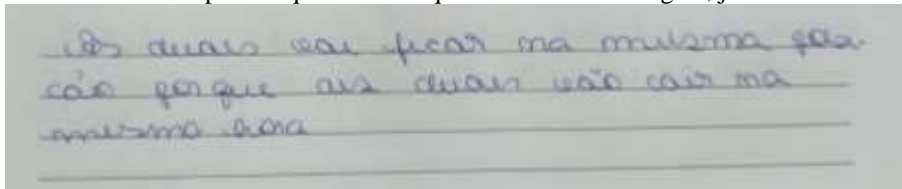 As duais vai ficar na mesma posi
cão porque as duais vão cair na
mesmo aora